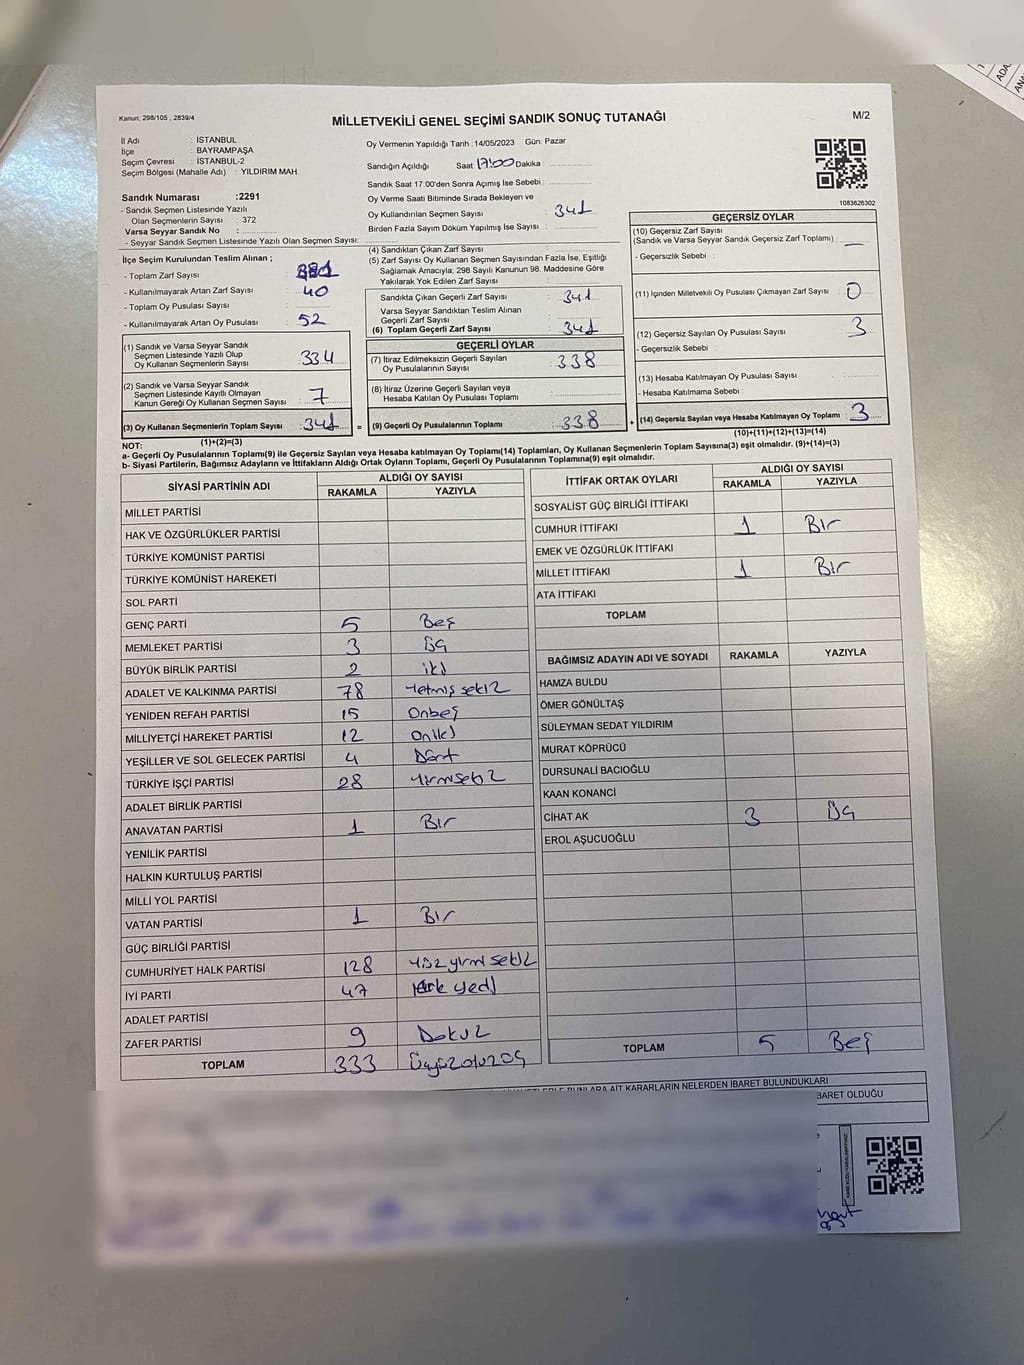 Kanun; 298/105 , 2839/4
MİLLETVEKİLİ GENEL SEÇİMİ SANDIK SONUÇ TUTANAĞI
M/2
İl Adı : İSTANBUL
İlçe : BAYRAMPAŞA
Seçim Çevresi : İSTANBUL-2
Seçim Bölgesi (Mahalle Adı) : YILDIRIM MAH.
Sandık Numarası :2291
- Sandık Seçmen Listesinde Yazılı
Olan Seçmenlerin Sayısı : 372
Varsa Seyyar Sandık No :
- Seyyar Sandık Seçmen Listesinde Yazılı Olan Seçmen Sayısı:
Oy Vermenin Yapıldığı Tarih :14/05/2023 Gün: Pazar
Sandığın Açıldığı Saat: 17:00 Dakika :
Sandık Saat 17:00'den Sonra Açımış İse Sebebi :
Oy Verme Saati Bitiminde Sırada Bekleyen ve
Oy Kullandırılan Seçmen Sayısı : 341
Birden Fazla Sayım Döküm Yapılmış İse Sayısı :
1083626302
İlçe Seçim Kurulundan Teslim Alınan ;
- Toplam Zarf Sayısı :
- Kullanılmayarak Artan Zarf Sayısı : 40
- Toplam Oy Pusulası Sayısı :
- Kullanılmayarak Artan Oy Pusulası : 52
(1) Sandık ve Varsa Seyyar Sandık
Seçmen Listesinde Yazılı Olup
Oy Kullanan Seçmenlerin Sayısı : 334
(2) Sandık ve Varsa Seyyar Sandık
Seçmen Listesinde Kayıtlı Olmayan
Kanun Gereği Oy Kullanan Seçmen Sayısı : 7
(3) Oy Kullanan Seçmenlerin Toplam Sayısı : 341 =
(1)+(2)=(3)
(4) Sandıktan Çıkan Zarf Sayısı :
(5) Zarf Sayısı Oy Kullanan Seçmen Sayısından Fazla İse, Eşitliği
Sağlamak Amacıyla; 298 Sayılı Kanunun 98. Maddesine Göre
Yakılarak Yok Edilen Zarf Sayısı :
Sandıkta Çıkan Geçerli Zarf Sayısı : 341
Varsa Seyyar Sandıktan Teslim Alınan
Geçerli Zarf Sayısı :
(6) Toplam Geçerli Zarf Sayısı : 341
GEÇERLİ OYLAR
(7) İtiraz Edilmeksizin Geçerli Sayılan
Oy Pusulalarının Sayısı : 338
(8) İtiraz Üzerine Geçerli Sayılan veya
Hesaba Katılan Oy Pusulası Toplamı :
(9) Geçerli Oy Pusulalarının Toplamı : 338 +
GEÇERSİZ OYLAR
(10) Geçersiz Zarf Sayısı
(Sandık ve Varsa Seyyar Sandık Geçersiz Zarf Toplamı) : —
- Geçersizlik Sebebi :
(11) İçinden Milletvekili Oy Pusulası Çıkmayan Zarf Sayısı : 0
(12) Geçersiz Sayılan Oy Pusulası Sayısı : 3
- Geçersizlik Sebebi :
(13) Hesaba Katılmayan Oy Pusulası Sayısı :
- Hesaba Katılmama Sebebi :
(14) Geçersiz Sayılan veya Hesaba Katılmayan Oy Toplamı : 3
(10)+(11)+(12)+(13)=(14)
NOT:
a- Geçerli Oy Pusulalarının Toplamı(9) ile Geçersiz Sayılan veya Hesaba katılmayan Oy Toplamı(14) Toplamları, Oy Kullanan Seçmenlerin Toplam Sayısına(3) eşit olmalıdır. (9)+(14)=(3)
b- Siyasi Partilerin, Bağımsız Adayların ve İttifakların Aldığı Ortak Oyların Toplamı, Geçerli Oy Pusulalarının Toplamına(9) eşit olmalıdır.
SİYASİ PARTİNİN ADI ALDIĞI OY SAYISI
RAKAMLA YAZIYLA
MİLLET PARTİSİ
HAK VE ÖZGÜRLÜKLER PARTİSİ
TÜRKİYE KOMÜNİST PARTİSİ
TÜRKİYE KOMÜNİST HAREKETİ
SOL PARTİ
GENÇ PARTİ 5 Beş
MEMLEKET PARTİSİ 3 Üç
BÜYÜK BİRLİK PARTİSİ 2 iki
ADALET VE KALKINMA PARTİSİ 78 Yetmiş sekiz
YENİDEN REFAH PARTİSİ 15 Onbeş
MİLLİYETÇİ HAREKET PARTİSİ 12 Oniki
YEŞİLLER VE SOL GELECEK PARTİSİ 4 Dört
TÜRKİYE İŞÇİ PARTİSİ 28 Yirmisekiz
ADALET BİRLİK PARTİSİ
ANAVATAN PARTİSİ 1 Bir
YENİLİK PARTİSİ
HALKIN KURTULUŞ PARTİSİ
MİLLİ YOL PARTİSİ
VATAN PARTİSİ 1 Bir
GÜÇ BİRLİĞİ PARTİSİ
CUMHURİYET HALK PARTİSİ 128 Yüz yirmi sekiz
İYİ PARTİ 47 Kırk yedi
ADALET PARTİSİ
ZAFER PARTİSİ 9 Dokuz
TOPLAM 333 Üçyüzotuzüç
İTTİFAK ORTAK OYLARI ALDIĞI OY SAYISI
RAKAMLA YAZIYLA
SOSYALİST GÜÇ BİRLİĞİ İTTİFAKI
CUMHUR İTTİFAKI 1 Bir
EMEK VE ÖZGÜRLÜK İTTİFAKI
MİLLET İTTİFAKI 1 Bir
ATA İTTİFAKI
TOPLAM
BAĞIMSIZ ADAYIN ADI VE SOYADI RAKAMLA YAZIYLA
HAMZA BULDU
ÖMER GÖNÜLTAŞ
SÜLEYMAN SEDAT YILDIRIM
MURAT KÖPRÜCÜ
DURSUNALİ BACIOĞLU
KAAN KONANCİ
CİHAT AK 3 Üç
EROL AŞUCUOĞLU
TOPLAM 5 Beş
BUNLARA AİT KARARLARIN NELERDEN İBARET BULUNDUKLARI
BARET OLDUĞU